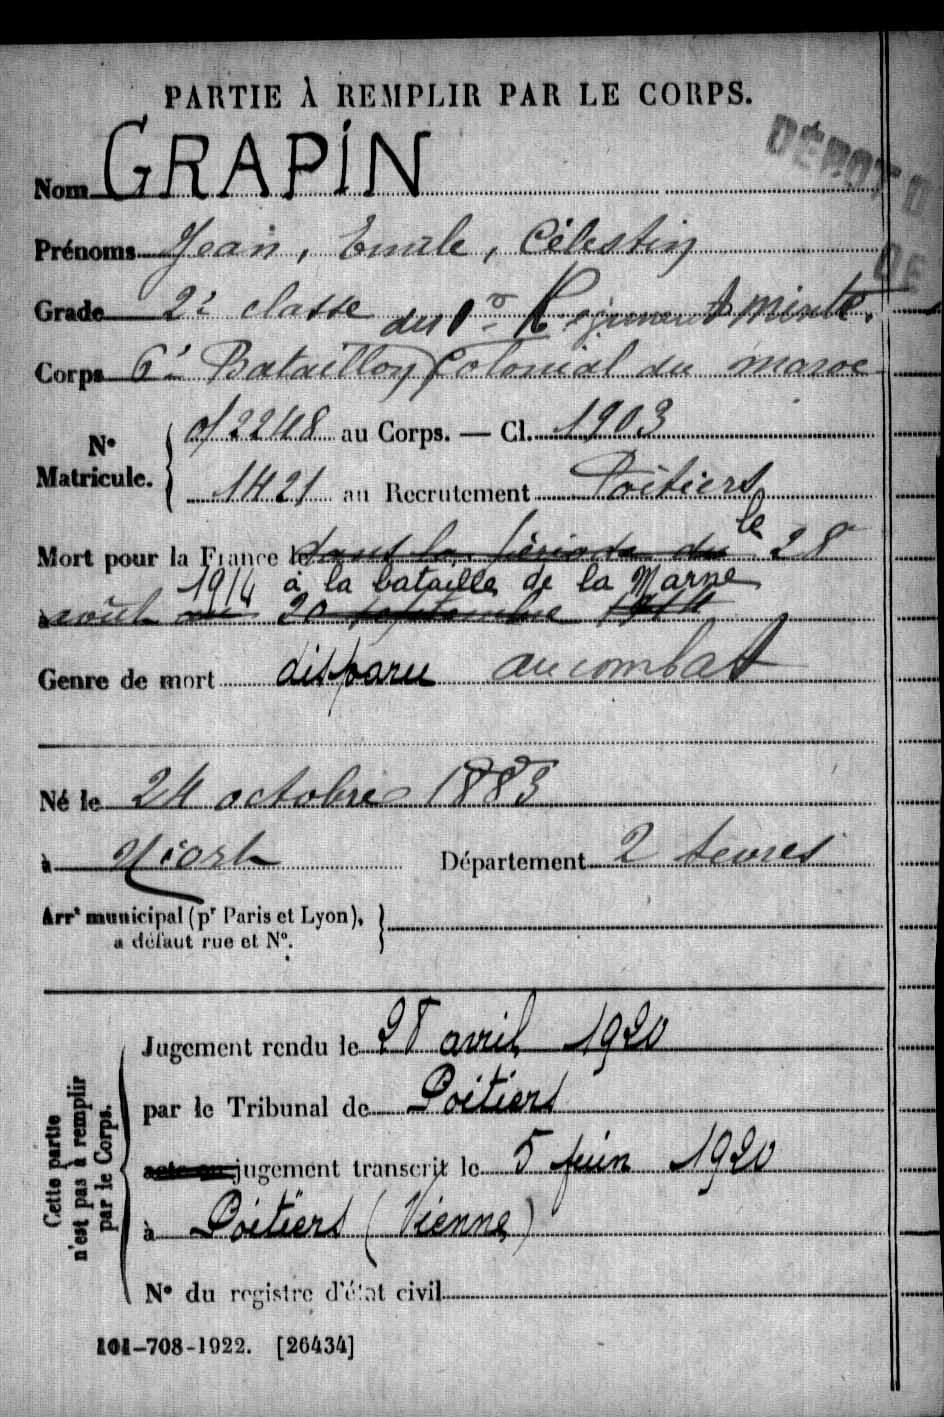 PARTIE À REMPLIR PAR LE CORPS.
DÉPOT D
DE
Nom GRAPIN
Prénoms Jean, Emile, Célestin
Grade 2e classe du 1er Régiment Mixte.
Corps 6e Bataillon Colonial du maroc
N° Matricule.
o/2248 au Corps. — Cl. 1903
1421 au Recrutement Poitiers
Mort pour la France le dans la période du le 28
1914 à la bataille de la Marne
août au 20 septembre 1914
Genre de mort disparu au combat
Né le 24 octobre 1883
à Niort Département 2 Sevres
Arrt municipal (pr Paris et Lyon),
a défaut rue et N°.
Cette partie n'est pas à remplir par le Corps.
Jugement rendu le 28 avril 1920
par le Tribunal de Poitiers
acte ou jugement transcrit le 5 juin 1920
à Poitiers (Vienne)
N° du registre d'état civil
101-708-1922. [26434]